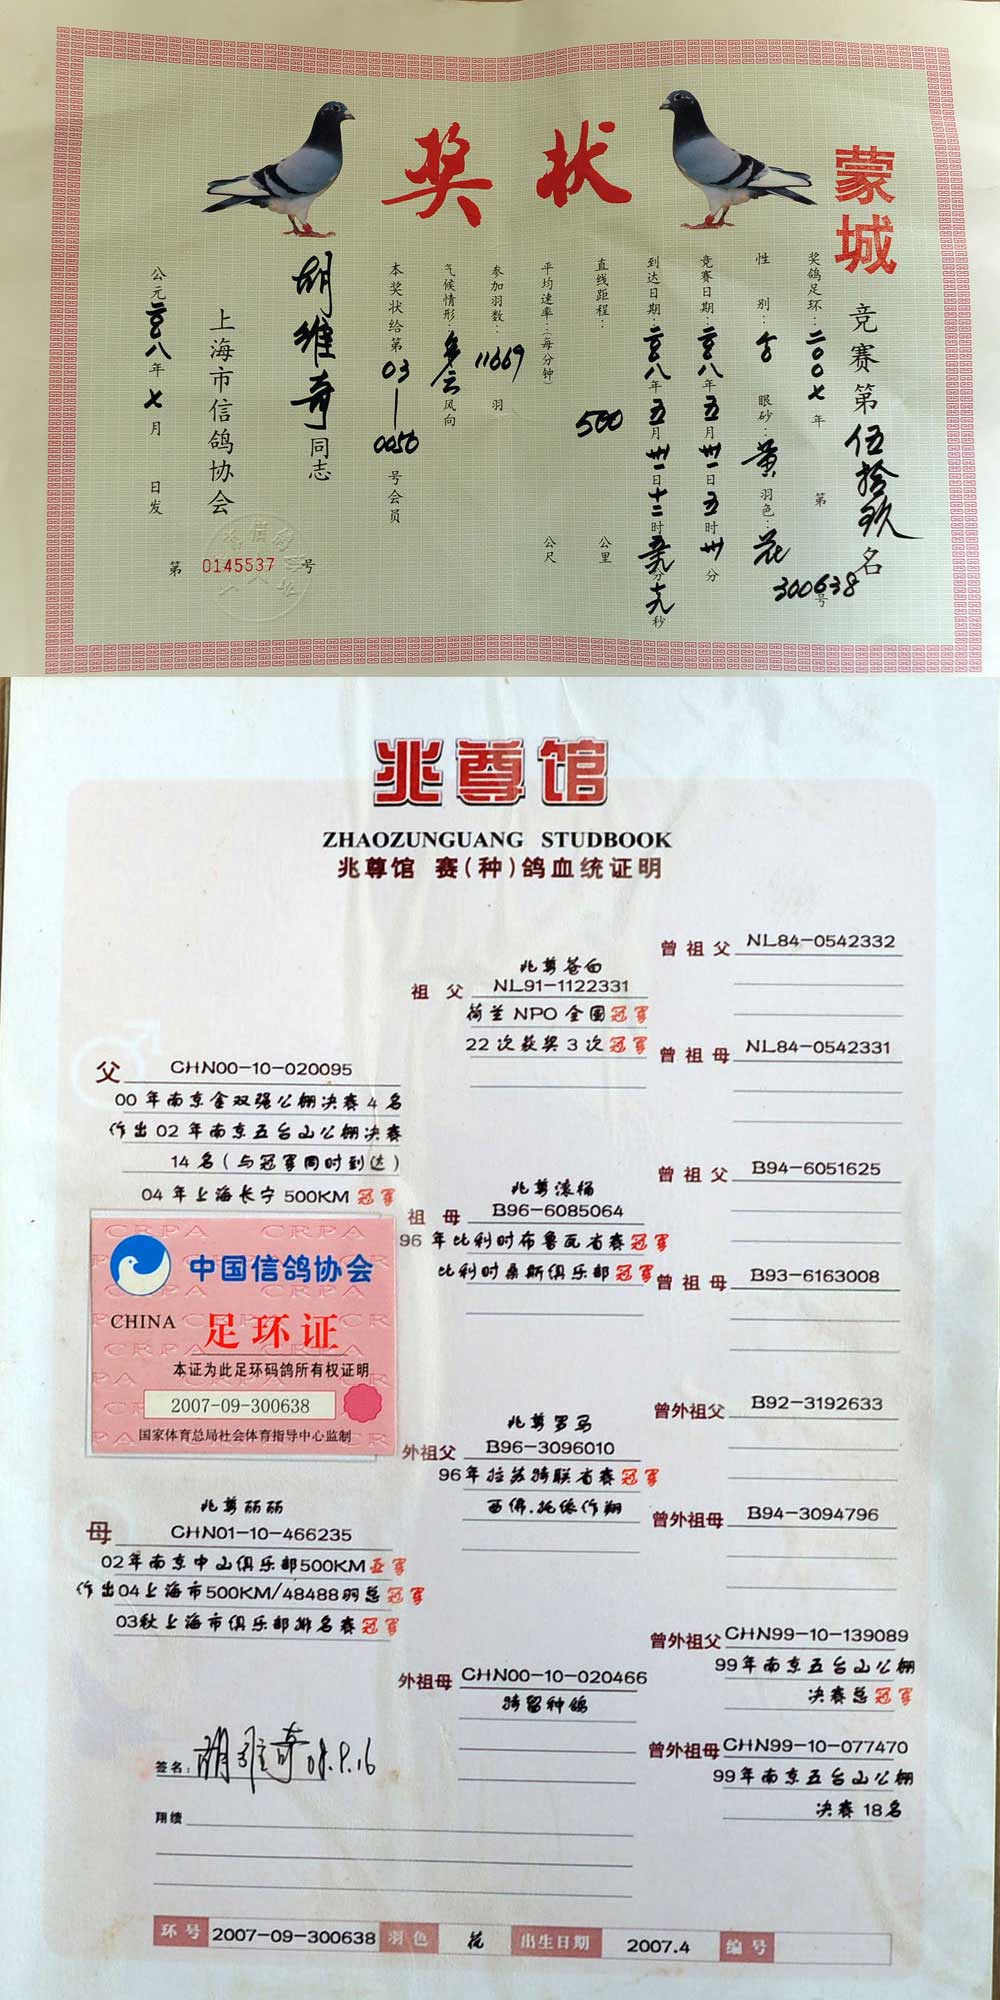 奖状
蒙城
竞赛第伍拾玖名
奖鸽足环：二00七年 第300638号
性别： 眼砂：黄 羽色：花
竞赛日期：二00八年五月卅一日五时卅分
到达日期：二00八年五月卅一日十二时 分 秒
直线距程：500公里
平均速率：(每分钟) 公尺
参加羽数：11669羽
气候情形：多云 风向
本奖状给第03—0050号会员
胡维奇同志
上海市信鸽协会
公元二00八年七月 日发
第 0145537 号
兆尊馆
ZHAOZUNGUANG STUDBOOK
兆尊馆 赛(种)鸽血统证明
父 CHN00-10-020095
00年南京金双强公棚决赛4名
作出02年南京五台山公棚决赛
14名(与冠军同时到达)
04年上海长宁500KM冠军
CRPA CRPA
中国信鸽协会
CHINA 足环证
本证为此足环码鸽所有权证明
2007-09-300638
国家体育总局社会体育指导中心监制
兆尊丽丽
母 CHN01-10-466235
02年南京中山俱乐部500KM亚军
作出04上海市500KM/48488羽总冠军
03秋上海市俱乐部排名赛冠军
兆尊苍白
祖父 NL91-1122331
荷兰NPO全国冠军
22次获奖3次冠军
兆尊滚桶
祖母 B96-6085064
96年比利时布鲁瓦省赛冠军
比利时桑斯俱乐部冠军
兆尊罗马
外祖父 B96-3096010
96年拉苏特联省赛冠军
西佛.托依作翔
外祖母 CHN00-10-020466
特留种鸽
曾祖父 NL84-0542332
曾祖母 NL84-0542331
曾祖父 B94-6051625
曾祖母 B93-6163008
曾外祖父 B92-3192633
曾外祖母 B94-3094796
曾外祖父 CHN99-10-139089
99年南京五台山公棚
决赛总冠军
曾外祖母 CHN99-10-077470
99年南京五台山公棚
决赛18名
签名：胡维奇 08.9.16
翔绩
环号 2007-09-300638 羽色 花 出生日期 2007.4 编号